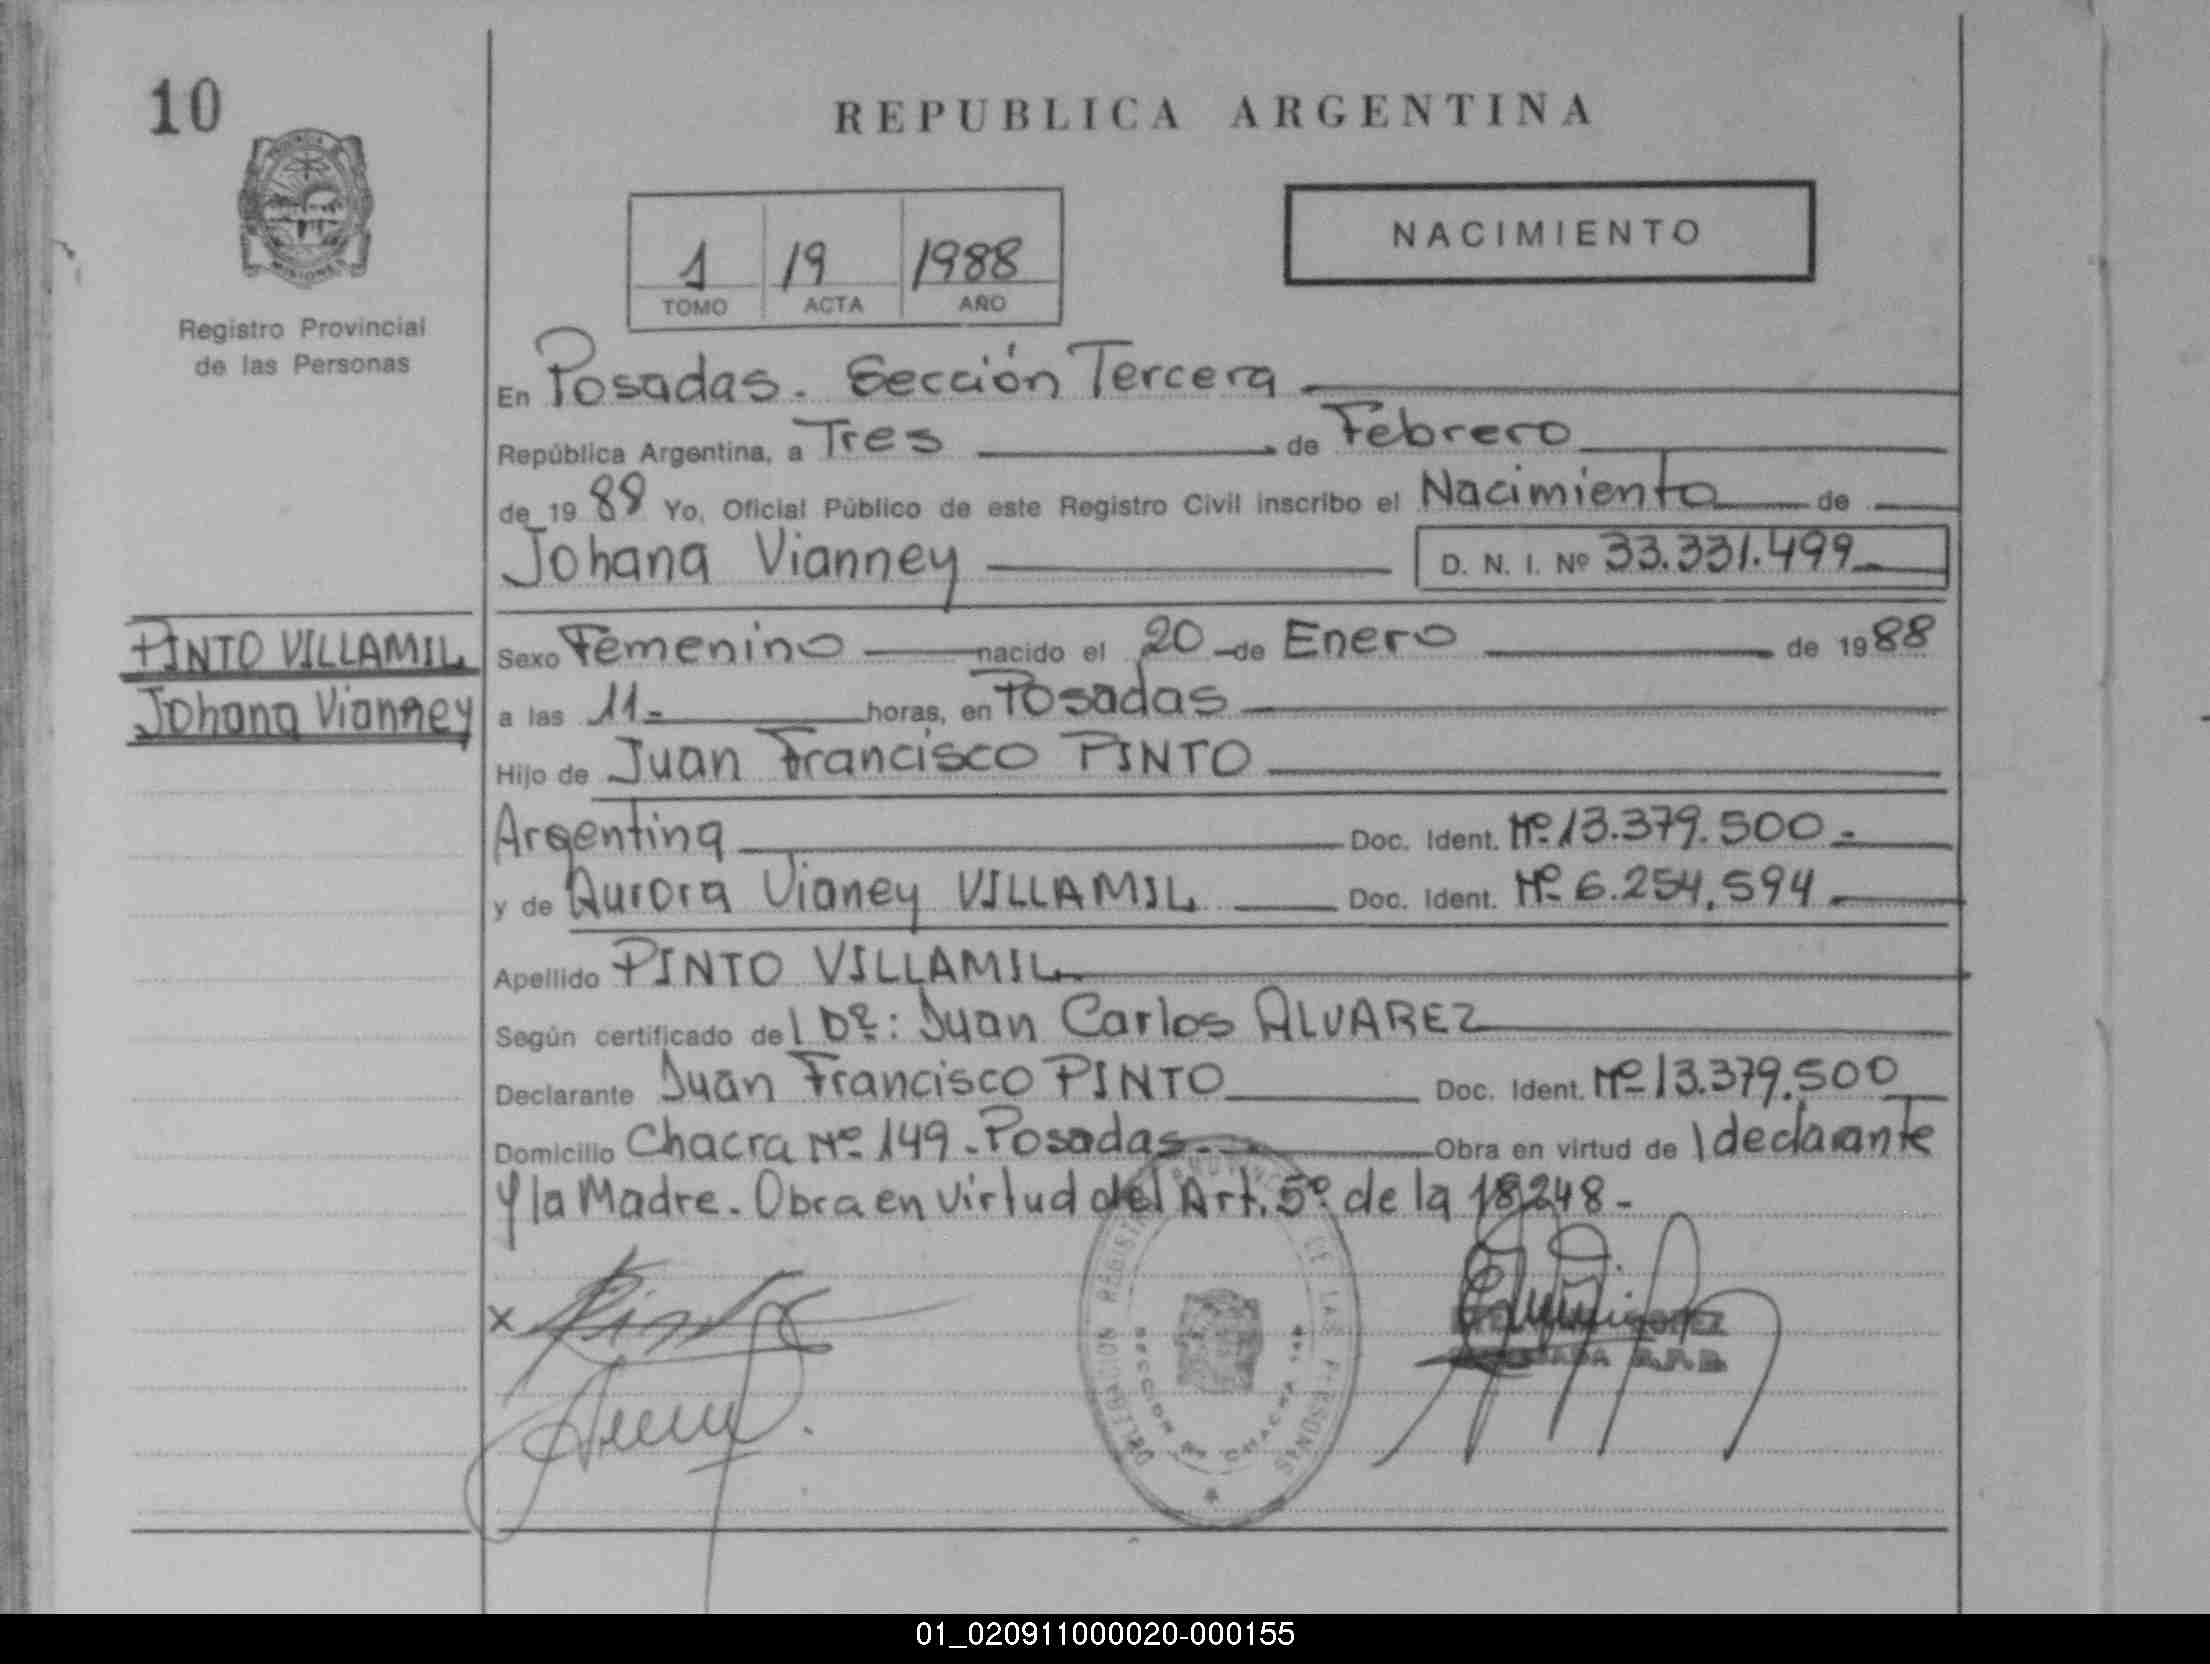 10
REPUBLICA ARGENTINA
NACIMIENTO
1 19 1988
TOMO ACTA AÑO
Registro Provincial
de las Personas
En Posadas. Sección Tercera
República Argentina, a Tres de Febrero
de 1988 Yo, Oficial Público de este Registro Civil inscribo el Nacimiento de
Johana Vianney D. N. I. Nº 33.331.499
PINTO VILLAMIL
Johana Vianney
Sexo Femenino nacido el 20 de Enero de 1988
a las 11- horas, en Posadas
Hijo de Juan Francisco PINTO
Argentina Doc. Ident. Nº 13.379.500.-
y de Aurora Vianey VILLAMIL Doc. Ident. Nº 6.254.594
Apellido PINTO VILLAMIL
Según certificado del Dr: Juan Carlos ALVAREZ
Declarante Juan Francisco PINTO Doc. Ident. Nº 13.379.500
Domicilio Chacra Nº 149 - Posadas.- Obra en virtud de l declarante
y la Madre. Obra en virtud del Art. 5º de la 18248-
x Pinto
DELEGACION REGISTRO PROVINCIAL DE LAS PERSONAS
SECCION CHACRA 149
01_020911000020-000155